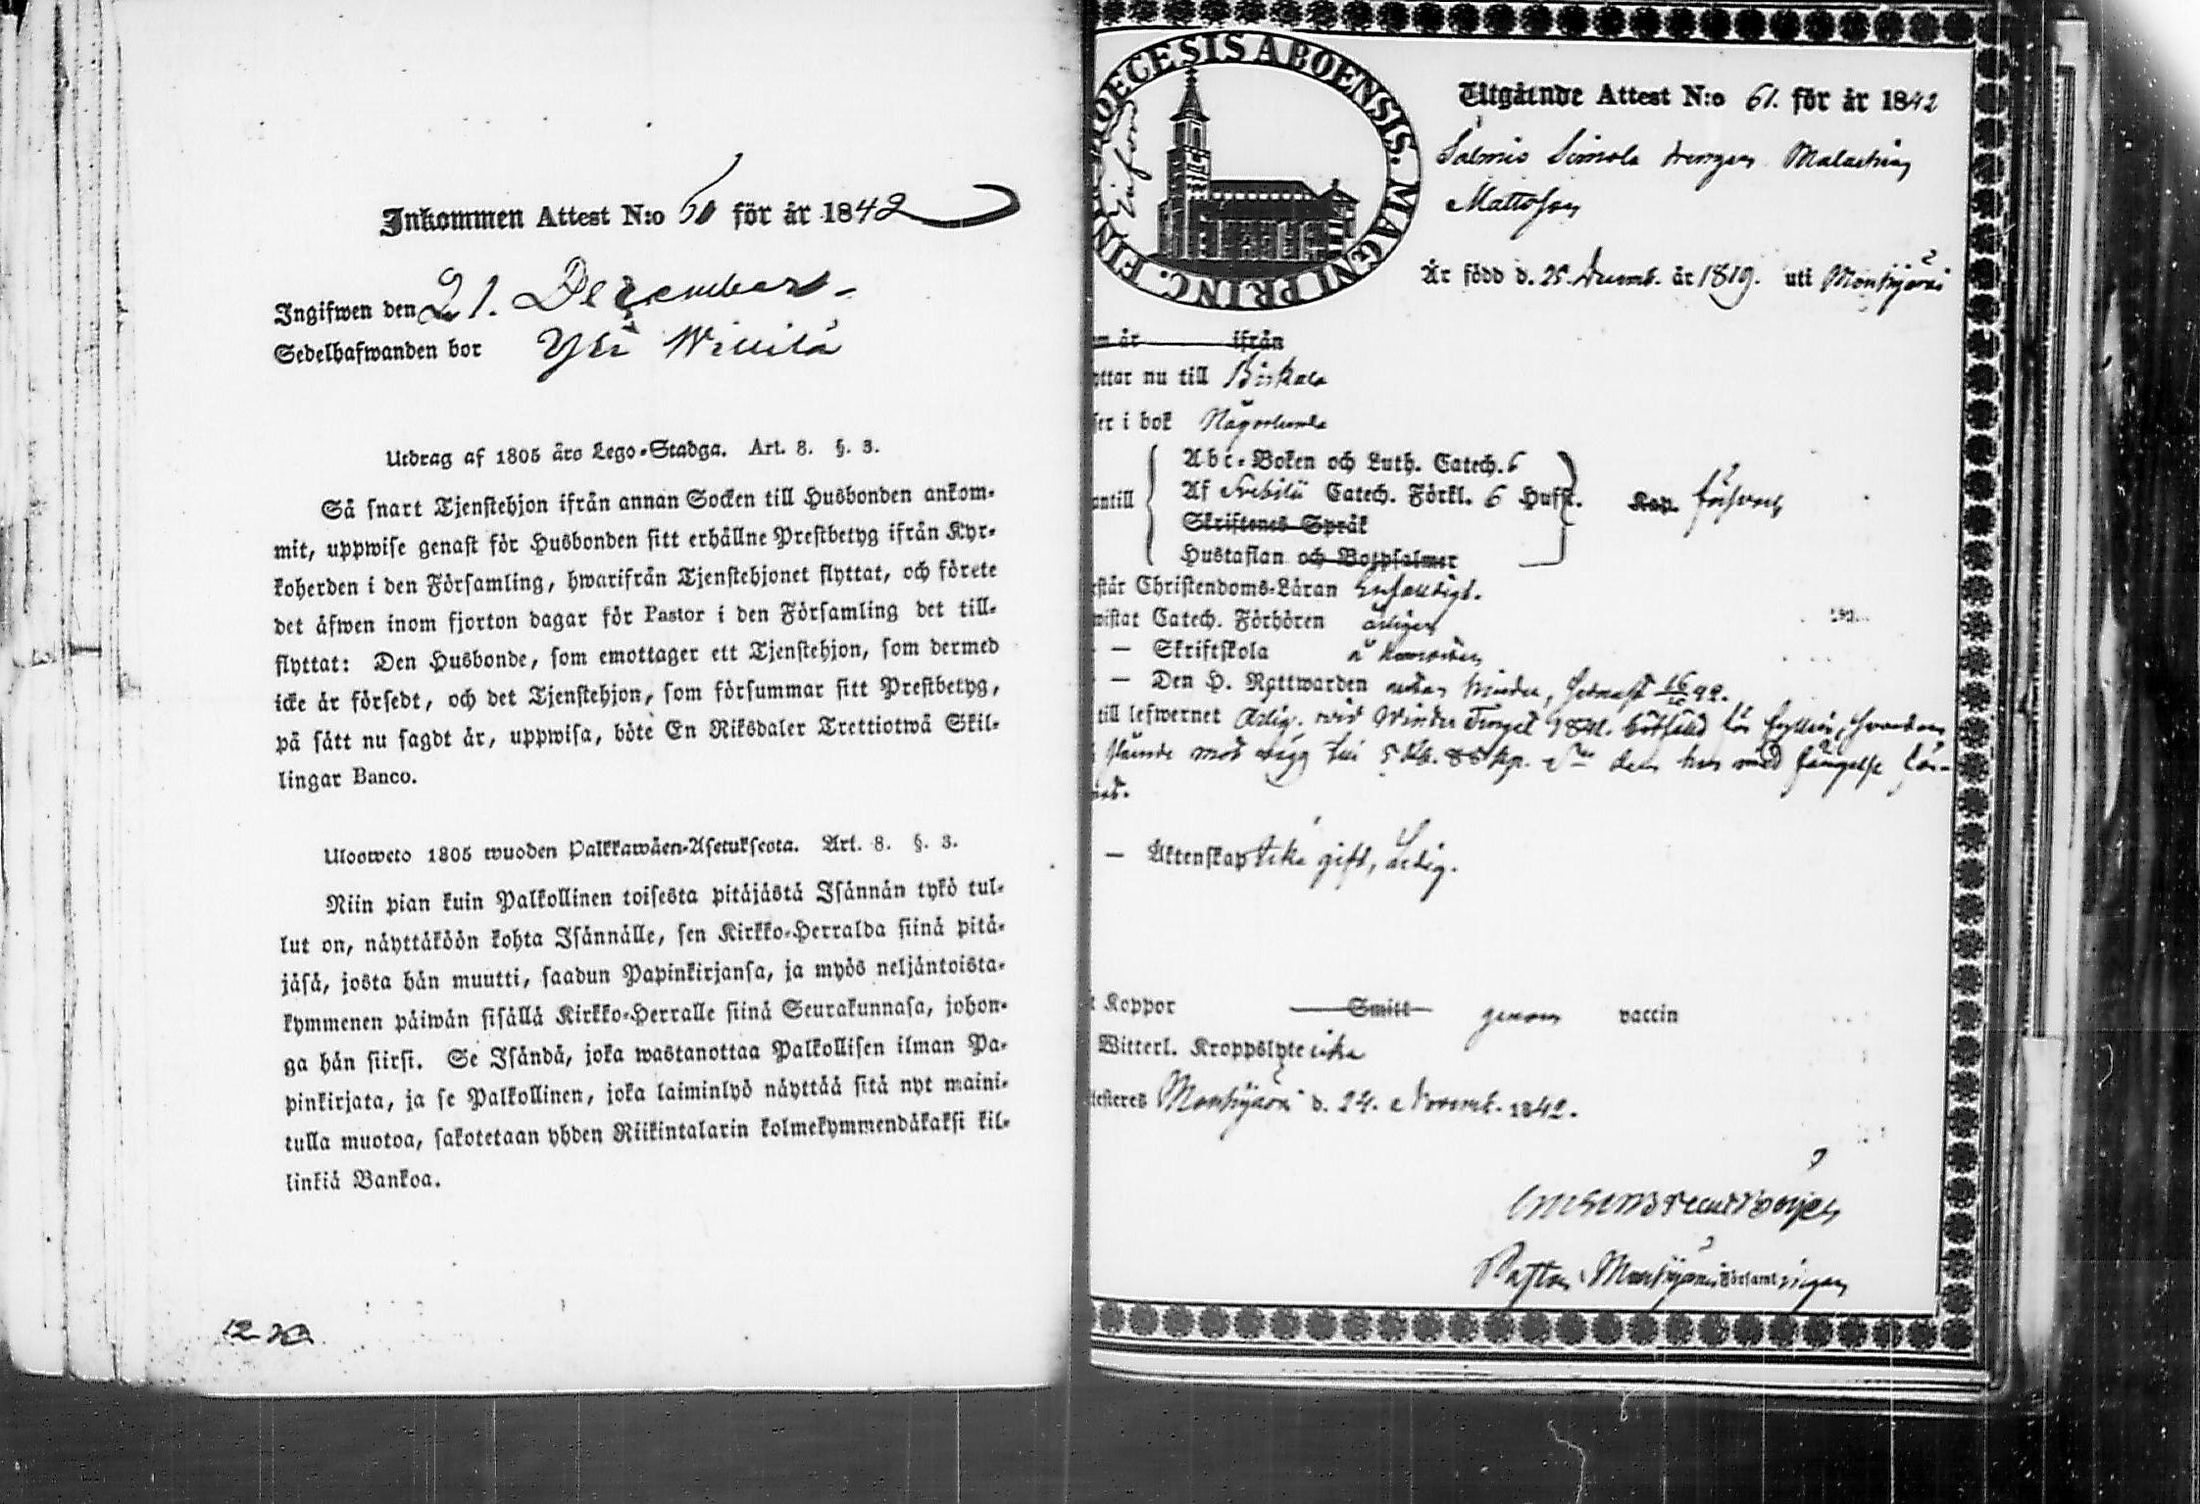 Inkommen Attest N:o 60 för år 1842
Ingifwen den 21. December.
Sedelhafwanden bor Yli Willilä
Utdrag af 1805 års Lego-Stadga. Art. 8. §. 3.
Så snart Tjenstehjon ifrån annan Socken till Husbonden ankom-
mit, uppwise genast för Husbonden sitt erhållne Prestbetyg ifrån Kyr-
koherden i den Församling, hwarifrån Tjenstehjonet flyttat, och förete
det äfwen inom fjorton dagar för Pastor i den Församling det till-
flyttat: Den Husbonde, som emottager ett Tjenstehjon, som dermed
icke är försedt, och det Tjenstehjon, som försummar sitt Prestbetyg,
på sätt nu sagdt är, uppwisa, böte En Riksdaler Trettiotwå Skil-
lingar Banco.
Ulosweto 1805 wuoden Palkkawäen-Asetuksesta. Art. 8. §. 3.
Niin pian kuin Palkollinen toisesta pitäjästä Isännän tykö tul-
lut on, näyttäköön kohta Isännälle, sen Kirkko-Herralda siinä pitä-
jäsä, josta hän muutti, saadun Papinkirjansa, ja myös neljäntoista-
kymmenen päiwän sisällä Kirkko-Herralle siinä Seurakunnasa, johon-
ga hän siirsi. Se Isändä, joka wastanottaa Palkollisen ilman Pa-
pinkirjata, ja se Palkollinen, joka laiminlyö näyttää sitä nyt maini-
tulla muotoa, sakotetaan yhden Riikintalarin kolmekymmendäkaksi kil-
linkiä Bankoa.
DIOECESIS ABOENSIS. MAGNI PRINC. FIN
Utgående Attest N:o 61. för år 1842
Salmis Simola drengen Malachias
Mattsson
Är född d. 25. Decemb. år 1819. uti Mouhijärvi
år ifrån
nu till Birkala
i bok Någorlunda
Abc-Boken och Luth. Catech. 6
Af Svebilii Catech. Förkl. 6 Hufst. Kap. försvarl
Skriftenes Språk
Hustaflan och Botpsalmer
Christendoms-Läran Enfaldigt.
Catech. Förhören årligen
— Skriftskola
— Den H. Nattwarden utan hinder, senast
till lefwernet ärlig. vid Winter Tinget 1842. bötfälld för fylleri,
med
— Äktenskap Icke gift, ledig.
Koppor Smitt genom vaccin
Witterl. Kroppslyte icke
Mouhijärvi d. 24. Novemb. 1842.
Pastor i Mouhijärvi Församlingen